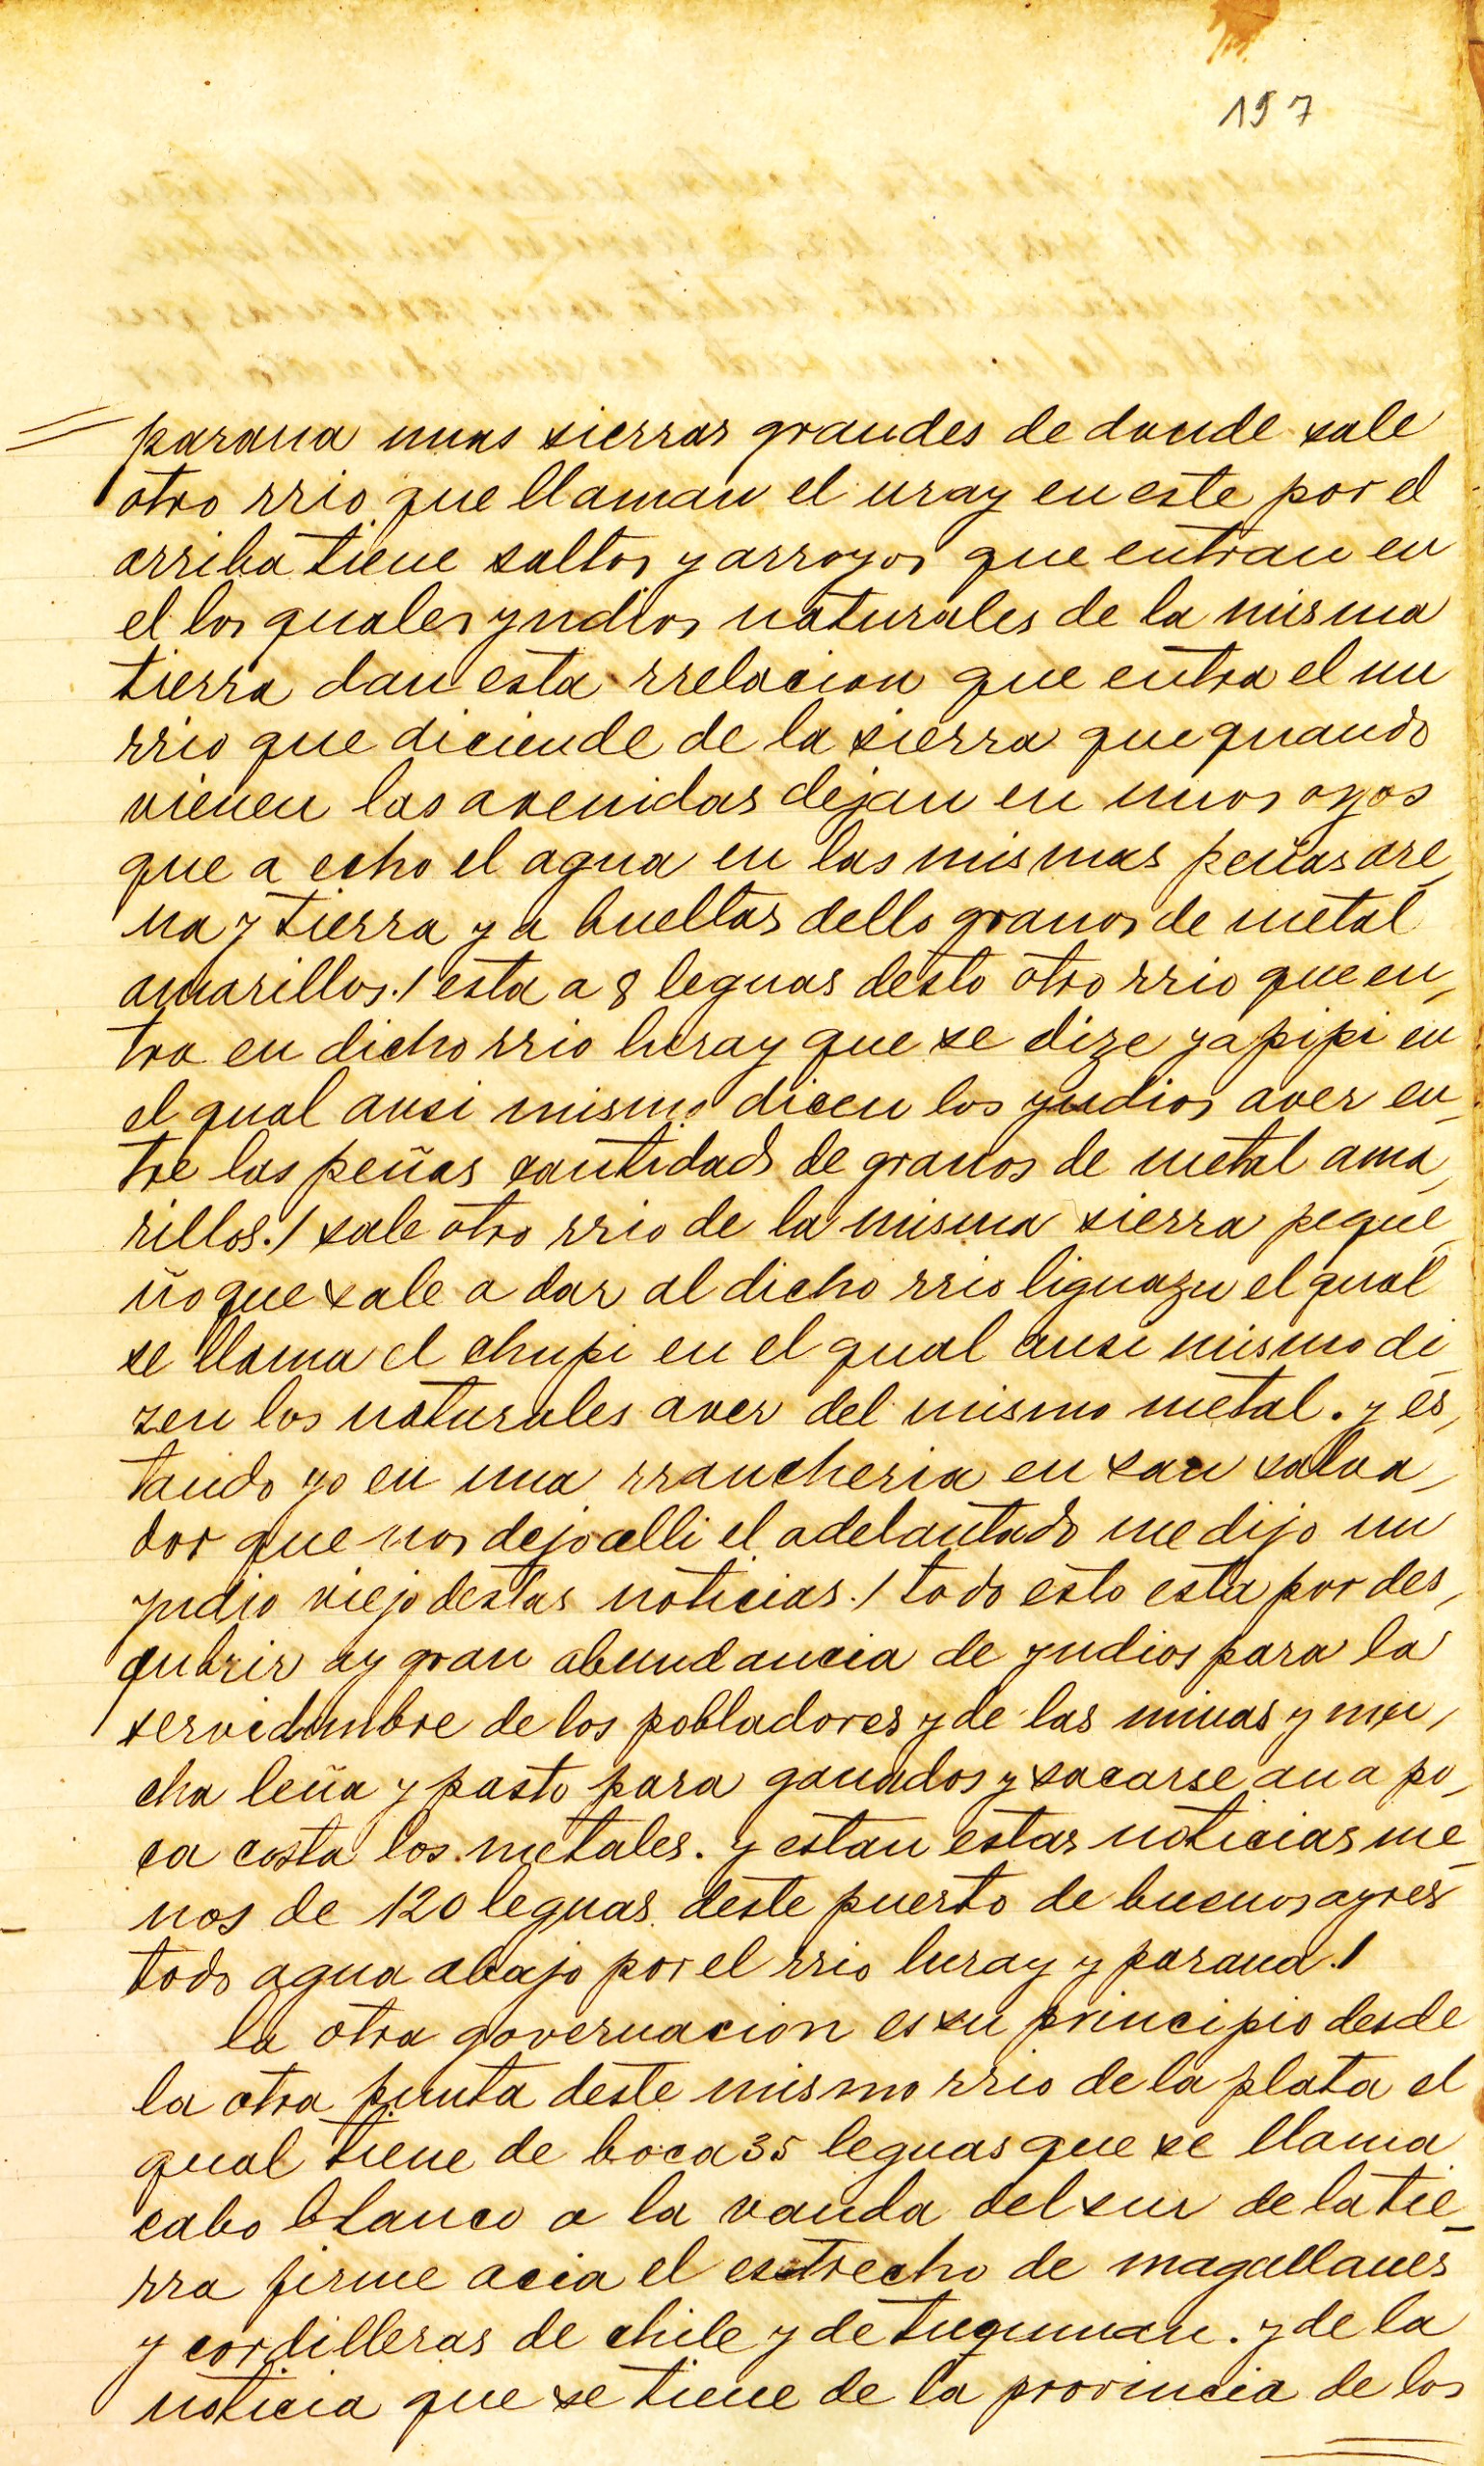 197
parana unas sierras grandes de donde sale
otro rrio que llaman el uray en este por el
arriba tiene saltos y arroyos que entran en
el los quales yndios naturales de la misma
tierra dan esta rrelacion que entra el un
rrio que diciende de la sierra que quando
vienen las avenidas dejan en unos oyos
que a echo el agua en las mismas peñas are_
na y tierra y a bueltas dello granos de metal
amarillos./ esta a 8 leguas desto otro rrio que en_
tra en dicho rrio huray que se dize yapipi en
el qual ansi mismo dicen los yndios aver en_
tre las peñas cantidad de granos de metal ama_
rillos./ sale otro rrio de la misma sierra peque_
ño que sale a dar al dicho rrio liguazu el qual
se llama el chupi en el qual ansi mismo di_
zen los naturales aver del mismo metal. y es_
tando yo en una rrancheria en san salva_
dor que nos dejo alli el adelantado me dijo un
yndio viejo destas noticias./ todo esto esta por des_
qubrir ay gran abundancia de yndios para la
servidumbre de los pobladores y de las minas y mu_
cha leña y pasto para ganados y sacarse an a po_
ca costa los metales. y estan estas noticias me_
nos de 120 leguas deste puerto de buenos ayres
todo agua abajo por el rrio huray y parana./
la otra governacion es su principio desde
la otra punta deste mismo rrio de la plata el
qual tiene de boca 35 leguas que se llama
cabo blanco a la vanda del sur de la tie_
rra firme acia el estrecho de magallanes
y cordilleras de chile y de tuquman. y de la
noticia que se tiene de la provincia de los